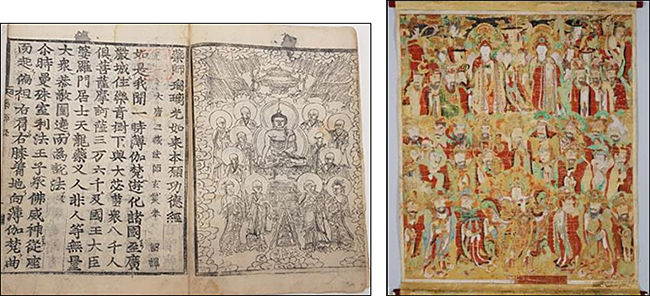 藥師瑠璃光如來本願功德經
大唐三藏法師玄奘奉 詔譯
如是我聞一時薄伽梵遊化諸國至廣
嚴城住樂音樹下與大苾芻衆八千人
俱菩薩摩訶薩三万六千及國王大臣
婆羅門居士天龍藥叉人非人等無量
大衆恭敬圍遶而爲說法
尒時曼殊室利法王子承佛威神從座
而起偏袒右肩右膝著地向薄伽梵曲